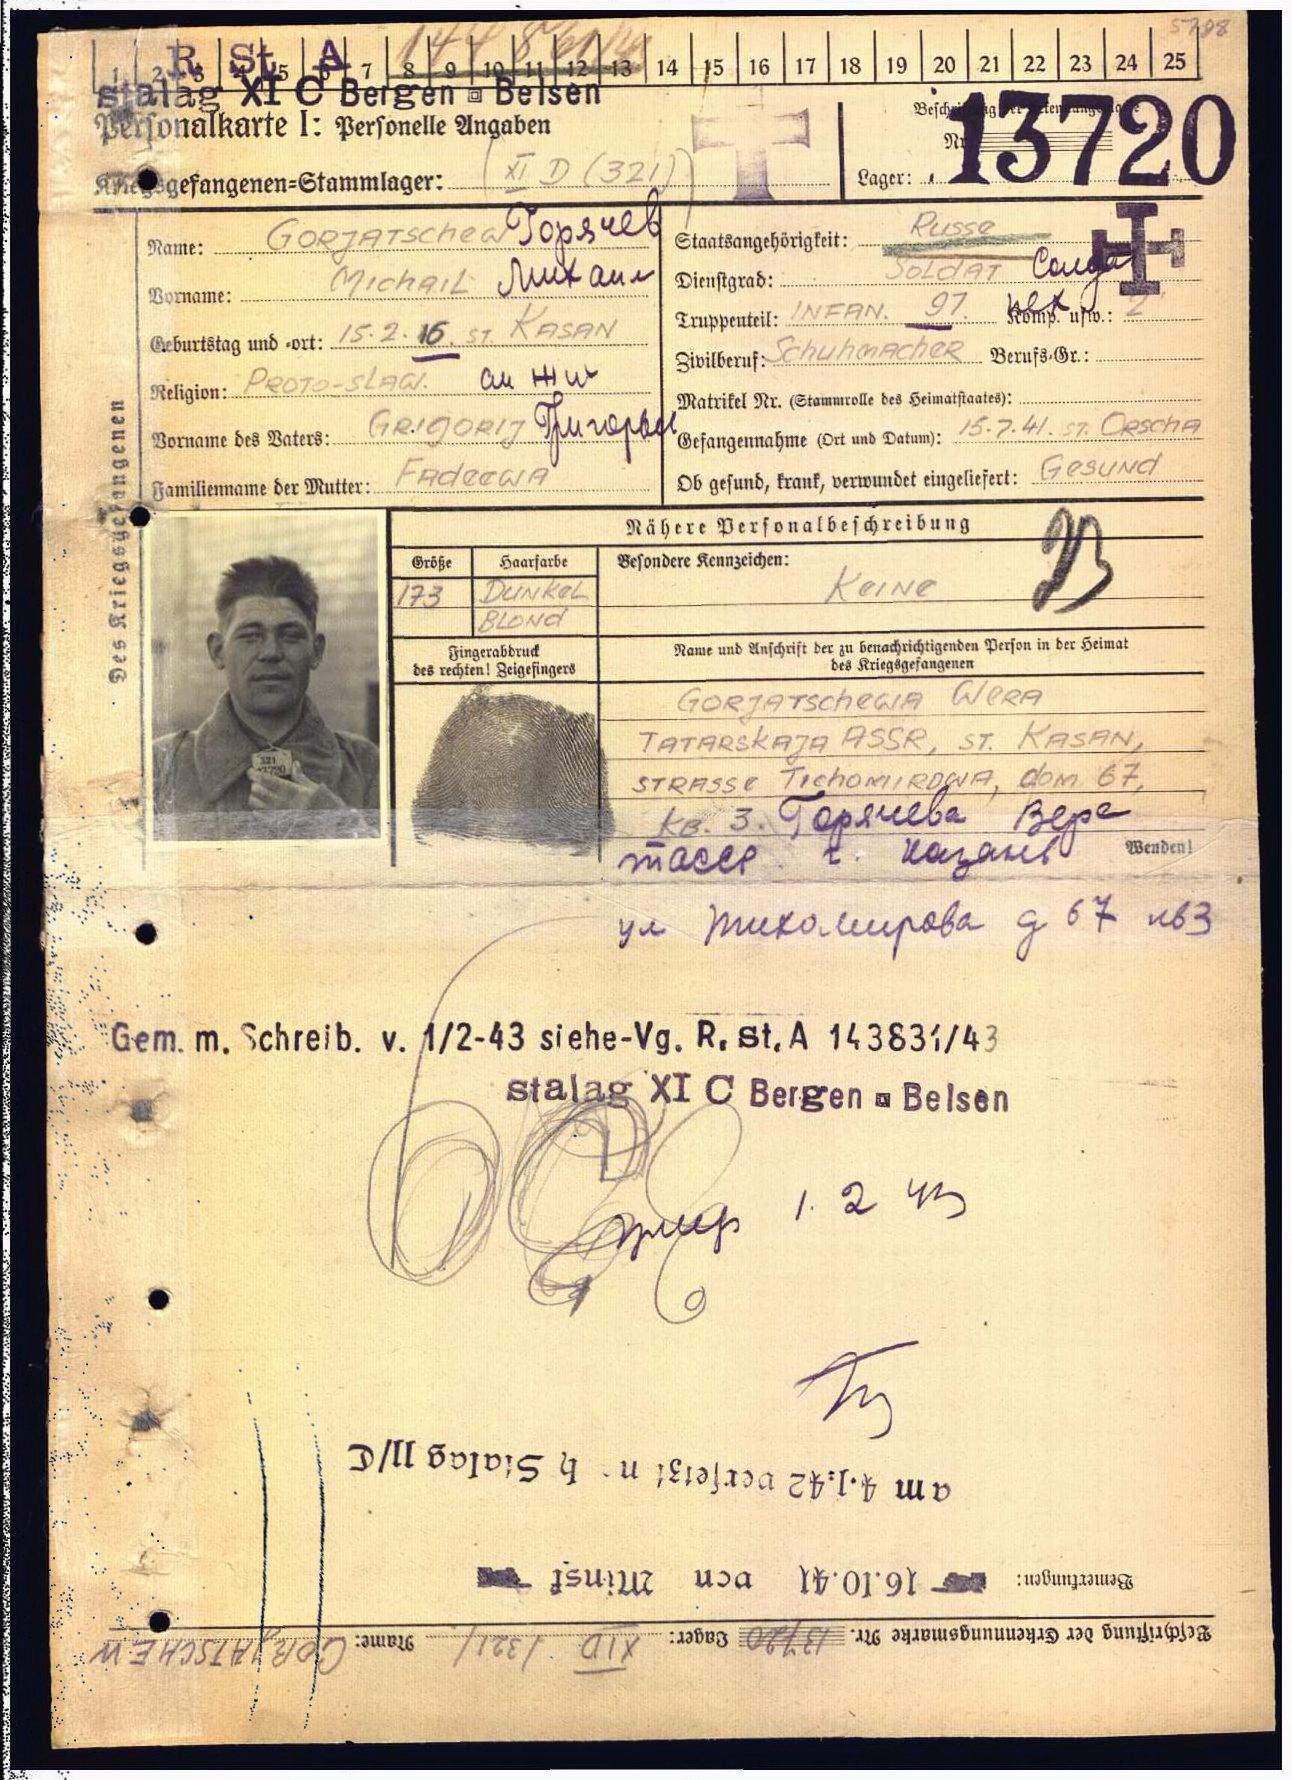 5798
R St A
1 2 3 4 5 6 7 8 9 10 11 12 13 14 15 16 17 18 19 20 21 22 23 24 25
stalag XI C Bergen Belsen
Personalkarte I: Personelle Angaben
Beschriftung der Erkennungsmarke
Nr. 13720
Kriegsgefangenen=Stammlager: XI D (321)
Lager:
Des Kriegsgefangenen
Name: GORJATSCHEW Горячев
Vorname: MICHAIL Михаил
Geburtstag und =ort: 15.2.16. ST. KASAN
Religion: PROTO-SLAW.
Vorname des Vaters: GRIGORIJ Григорьев
Familienname der Mutter: FADEEWA
Staatsangehörigkeit: RUSSE
Dienstgrad: SOLDAT Солдат
Truppenteil: INFAN. 97. Komp. usw.: 2
Zivilberuf: SCHUHMACHER Berufs=Gr.:
Matrikel Nr. (Stammrolle des Heimatstaates):
Gefangennahme (Ort und Datum): 15.7.41. ST. ORSCHA
Ob gesund, krank, verwundet eingeliefert: GESUND
Nähere Personalbeschreibung
Größe
Haarfarbe
Besondere Kennzeichen:
173
DUNKEL
BLOND
KEINE
Fingerabdruck
des rechten! Zeigefingers
Name und Anschrift der zu benachrichtigenden Person in der Heimat
des Kriegsgefangenen
321
13720
GORJATSCHEWA WERA
TATARSKAJA ASSR, ST. KASAN,
STRASSE TICHOMIROWA, DOM 67,
KB. 3. Горячева Вера
тасср г. Казань
Wenden!
ул Тихомирова д 67 кв 3
Gem. m. Schreib. v. 1/2-43 siehe-Vg. R. St. A 143831/43
stalag XI C Bergen Belsen
умер 1. 2 43
am 4.1.42 versetzt n h Stalag 11/C
Bemerkungen: 16.10.41 von Minsk
Beschriftung der Erkennungsmarke Nr. 13720 Lager: XI D /321/ Name: GORJATSCHEW